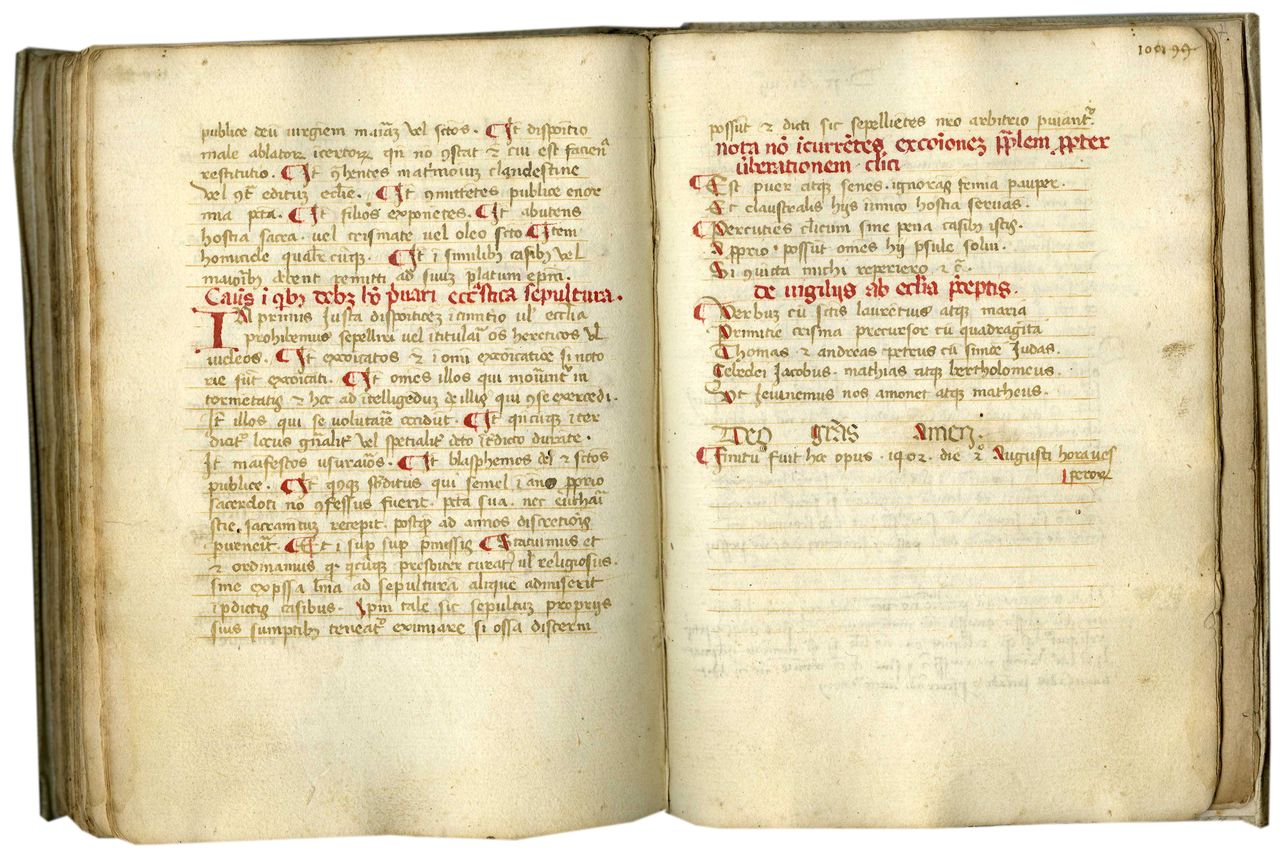 publice deū uirginem maiāz vel sctos. ¶ It dispositio
male ablatoꝝ īcertoꝝ qn̄ no ꝯstat ⁊ cui est faciēn
restitutio. ¶ It ꝯhentes mat'moiuz clandestine
vel ꝯt edituz eccl̄ie. ¶ It ꝯmittetes publice enor
mia pcta. ¶ It filios exponetes. ¶ It abutens
hostia sacra. vel crismate vel oleo scto ¶ Item
homicide qualr̄cūqꝫ. ¶ It ī similibꝫ casibꝫ vel
maioribꝫ debent remitti ad suuz platum ep̄m.
Casus ī qͥbꝫ debꝫ hō p̄uari eccl̄iastica sepultura.
In primis Iusta dispositōez
prohibemus sepelliri vel hereticos vl̄
iudeos. ¶ It excoīcatos ⁊ ī omni excoīcatiōe si noto
rie sūt excoīcati. ¶ It omēs illos qui moriunt in
tormetatis ⁊ hoc ad ītelligeduz de illis qui se exercedi.
It illos qui se volutarie occidūt. ¶ It qn̄cūqꝫ īter
dicat locus gn̄alit̄ vel spetialit̄ dcto īt̄dicto durāte.
It maifestos vsurarios. ¶ It blasphemos dei ⁊ sctos
publice. ¶ It qui semel ī ano pprio
sacerdoti nō ꝯfessus fuerit pcta sua. nec eucharī
stie sacramtuz recepit. postqꝫ ad annos discretiōis
puenerit. ¶ Et ī sup sup pmissis ¶ Statuimus et
⁊ ordinamus qꝫ qicūqꝫ presbiter curatꝰ vl̄ religiosus.
sine exp̄ssa līna ad sepulturā aliquē admiserit
ī p̄dictis casibus. Ip̄m tale sic sepultuz proprijs
suis sumptibꝫ teneatꝰ eximiare si ossa discerni
100. 99
possūt ⁊ dicti sic sepellietes nr̄o arbitrio puniant̄.
nota nō īcurrētes excoīonez pp̄lem ppter
v̄berationem cl̄ici
¶ Est puer atqꝫ senes. ignorās femīa pauper.
Et claustralis hijs iunico hostia seruās.
¶ Percuties cl̄icum sine pena casibꝫ istis.
A pprio possūt omēs hij psule solui.
Si qꝫ michi reperiero ⁊ c̄.
de uigilijs ab ecl̄ia p̄ceptis.
¶ Verbuz cū sctis laurētius atqꝫ maria
Primitie crisma precursor cū quadragita
Thomas ⁊ andreas petrus cū simōe Judas.
Zebedei Jacobus. mathias atqꝫ bertholomeus.
Vt Jeiunemus nos amonet atqꝫ matheus.
Deo grās Amen.
¶ Finitū fuit hoc opus. 1402. die 2° Augusti hora ues
peroꝝ